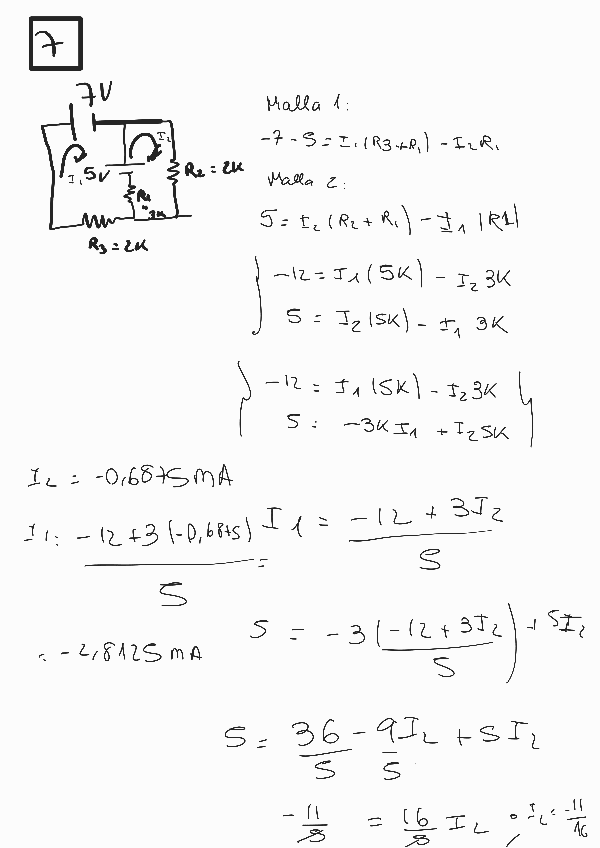 7
7V
I1
5V
I2
R1
3K
R2 = 2K
R3 = 2K
Malla 1:
-7 - 5 = I1(R3+R1) - I2R1
Malla 2:
5 = I2(R2 + R1) - I1 (R1)
-12 = I1(5K) - I2 3K
5 = I2(5K) - I1 3K
-12 = I1(5K) - I2 3K
5 = -3K I1 + I2 5K
I2 = -0,6875mA
I1 = -12 + 3I2 / 5
I1 = -12+3(-0,6875) / 5 =
= -2,8125 mA
5 = -3(-12 + 3I2 / 5) + 5I2
5 = 36/5 - 9I2/5 + 5I2
-11/5 = 16/5 I2 ; I2 = -11/16